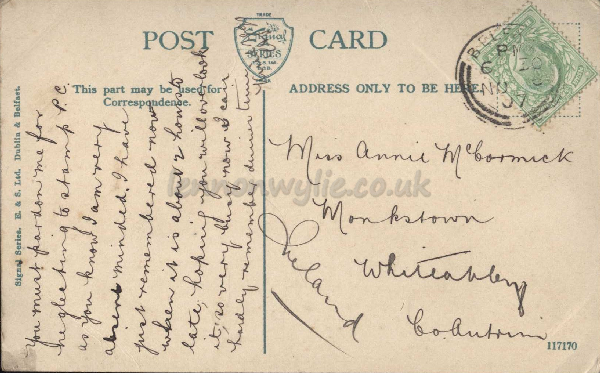 POST CARD
TRADE
Signal
SERIES
This part may be used for
Correspondence.
ADDRESS ONLY TO BE HERE
Signal Series. E. & S. Ltd. Dublin & Belfast.
You must pardon me for
neglecting to stamp P.C.
as you know I am very
absent minded. I have
just remembered now
when it is about 2 hours
late, hoping you will overlook
it, so very busy now I can
hardly remember dinner time
Miss Annie McCormick
Monkstown
Whiteabbey
Co. Antrim
Ireland
PM
NO
07
lennonwylie.co.uk
117170